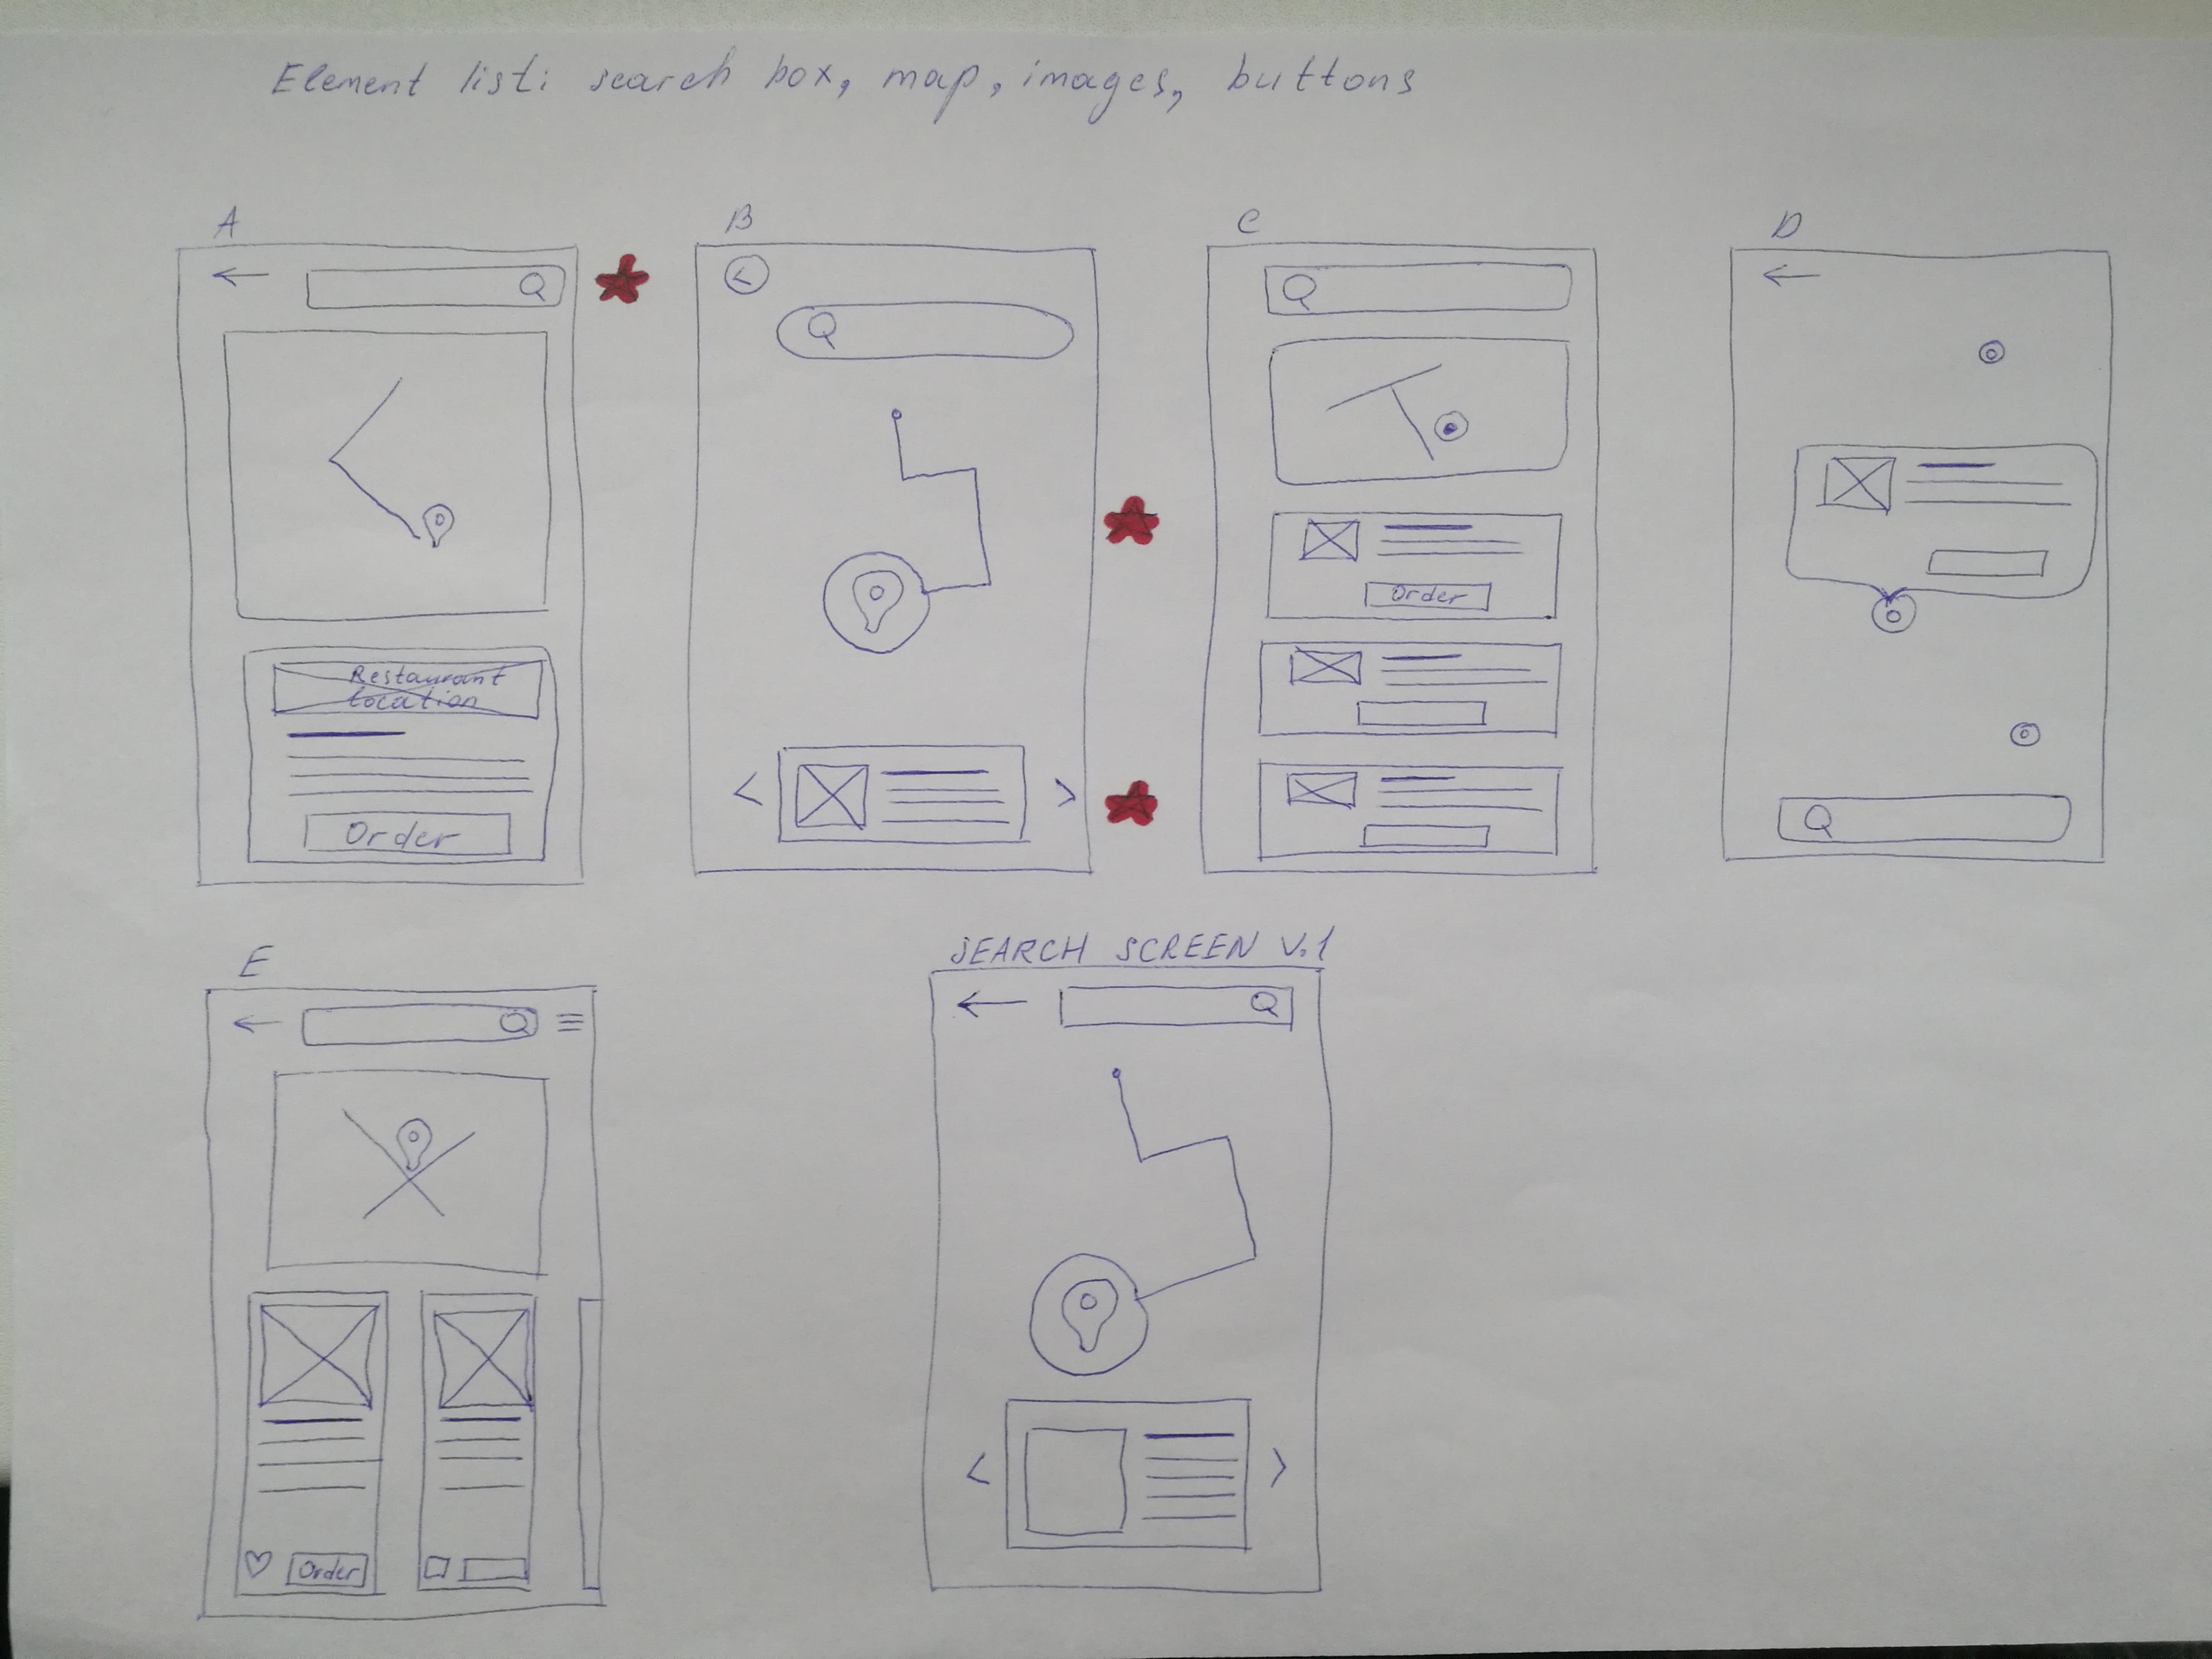 Element list: search box, map, images, buttons
A
B
C
D
Restaurant
location
Order
Order
E
Order
SEARCH SCREEN V.1